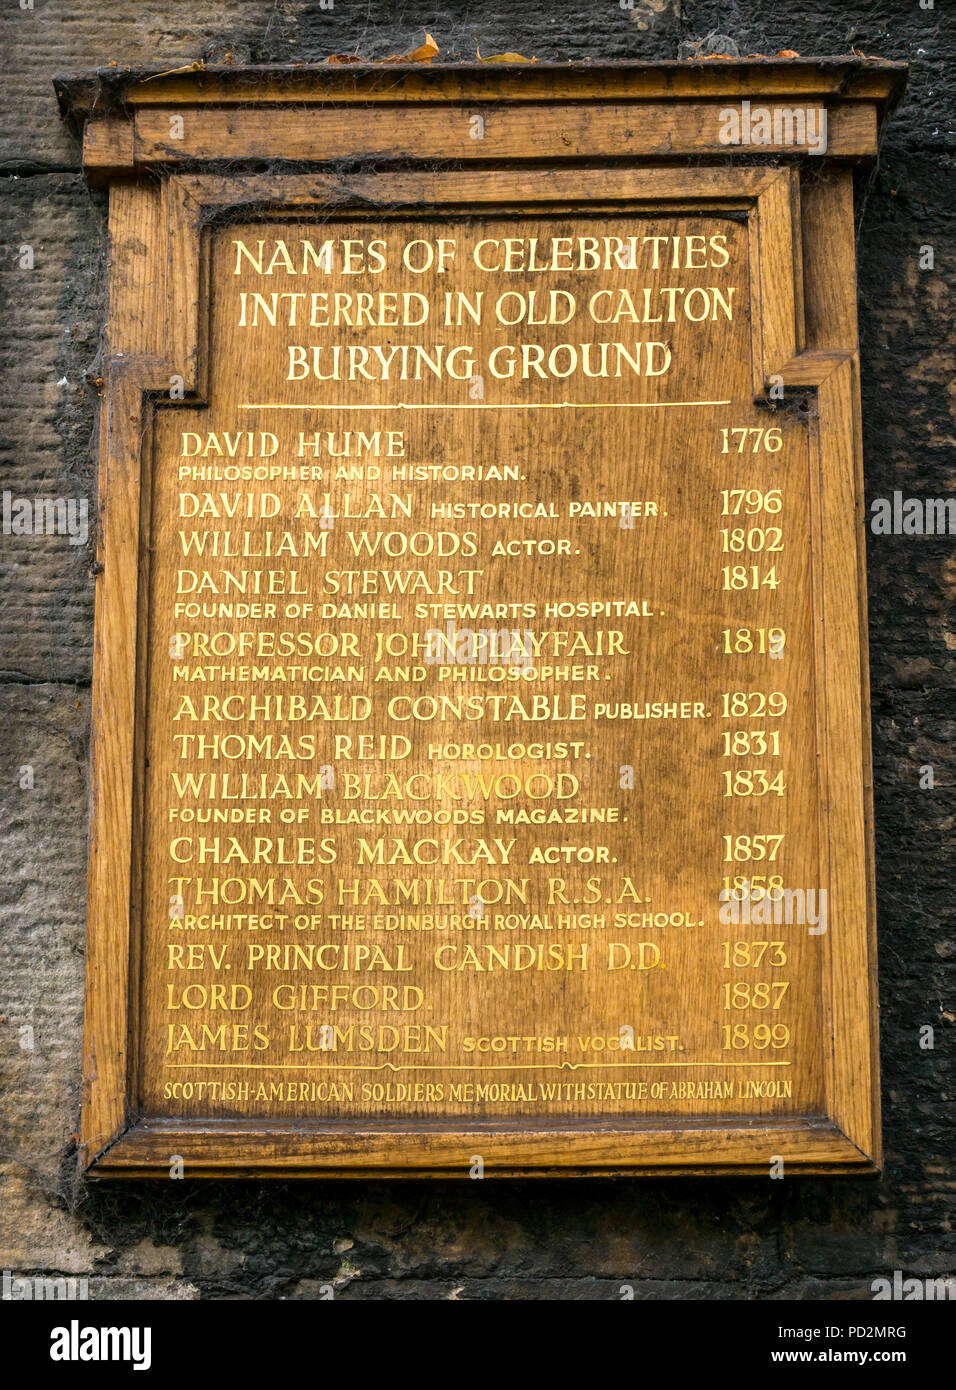 NAMES OF CELEBRITIES
INTERRED IN OLD CALTON
BURYING GROUND
DAVID HUME 1776
PHILOSOPHER AND HISTORIAN.
DAVID ALLAN HISTORICAL PAINTER. 1796
WILLIAM WOODS ACTOR. 1802
DANIEL STEWART 1814
FOUNDER OF DANIEL STEWARTS HOSPITAL.
PROFESSOR JOHN PLAYFAIR 1819
MATHEMATICIAN AND PHILOSOPHER.
ARCHIBALD CONSTABLE PUBLISHER. 1829
THOMAS REID HOROLOGIST. 1831
WILLIAM BLACKWOOD 1834
FOUNDER OF BLACKWOODS MAGAZINE.
CHARLES MACKAY ACTOR. 1857
THOMAS HAMILTON R.S.A. 1858
ARCHITECT OF THE EDINBURGH ROYAL HIGH SCHOOL.
REV. PRINCIPAL CANDISH D.D. 1873
LORD GIFFORD. 1887
JAMES LUMSDEN SCOTTISH VOCALIST. 1899
SCOTTISH-AMERICAN SOLDIERS MEMORIAL WITH STATUE OF ABRAHAM LINCOLN
alamy
Image ID: PD2MRG
www.alamy.com